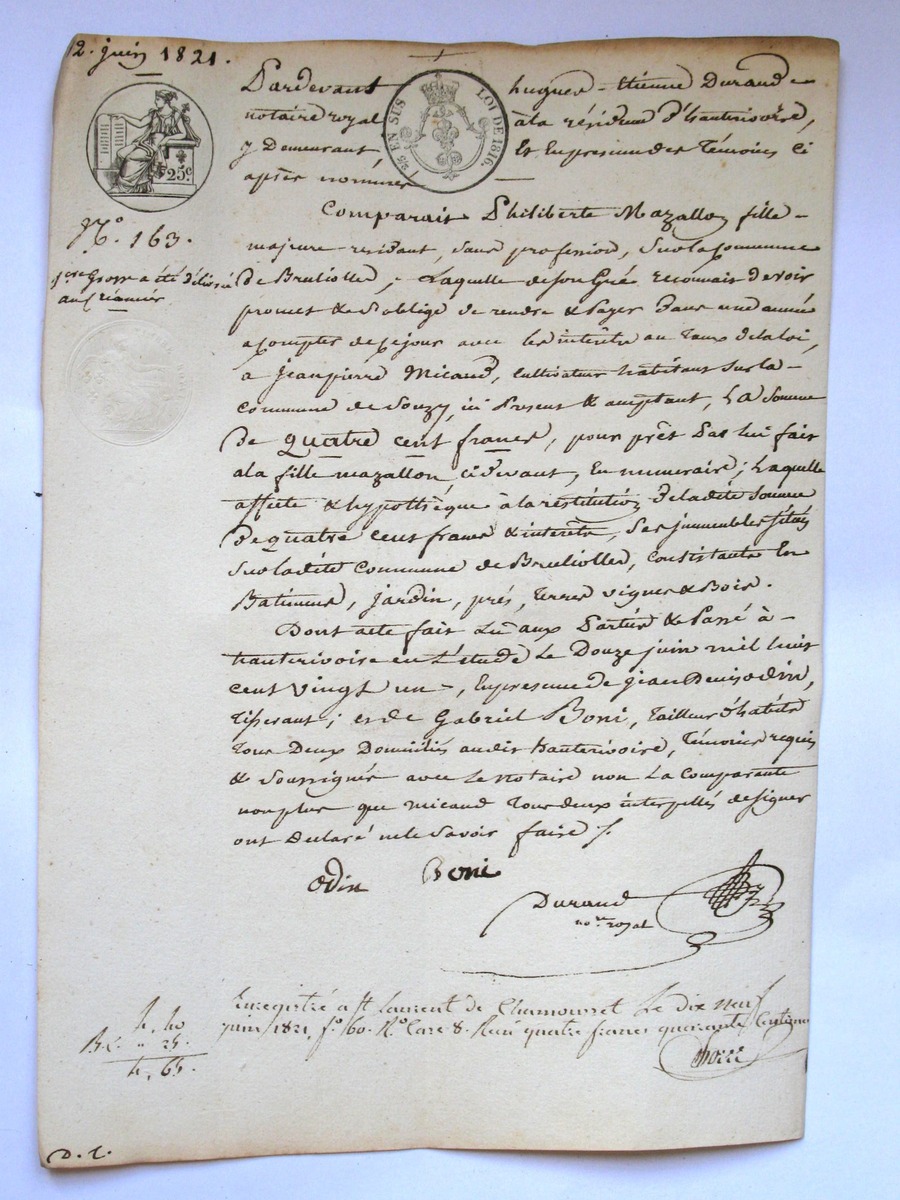 12. juin 1821.
Pardevant hugues-étienne Durand
notaire royal à la résidence d'hauterivoire,
y Demeurant Et En presence des Témoins ci
après nommés
1/25 EN SUS
LOI DE 1816.
25c.
N.° 163.
1ere Grosse a été délivrée
au créancier
Comparait Philiberte Mazallon fille
majeure residant, sans profession, sur la Commune
de Brulliolles, Laquelle de son Gré reconnait devoir
promet & s'oblige de rendre & Payer Dans une année
a compter de ce jour avec les interêts au Taux de la loi,
à Jean pierre Micaud, cultivateur habitant sur la
commune de Souzy, ici Present & acceptant, La Somme
De quatre cent francs, pour prêt Par lui fait
a la fille mazallon ci devant, En numeraire; Laquelle
affecte & hypothèque à la restitution de la dite Somme
De quatre cent francs & interêts, Ses immeubles situés
Sur la dite Commune de Brulliolles, consistants En
Batiments, jardin, prés, Terres vignes & Bois.
Dont acte fait Lu aux Parties & Passé à
hauterivoire en L'etude Le Douze juin mil huit
cent vingt un, En presence de jean Denis odin,
Tisserant; et de Gabriel Boni, Tailleur d'habits
Tous Deux Domiciliés audit hauterivoire, Témoins requis
& soussignés avec Le notaire non La Comparante
non plus que micaud Tous deux interpellés de signer
ont Déclaré ne le Savoir faire /.
Odin Boni
Durand
no.re royal
Enregistré a St Laurent de Chamousset Le dix neuf
juin 1821, f.° 160. R.° Case 8. Reçu quatre francs quarante Centimes
4, 40
" 25.
4, 65.
D. C.